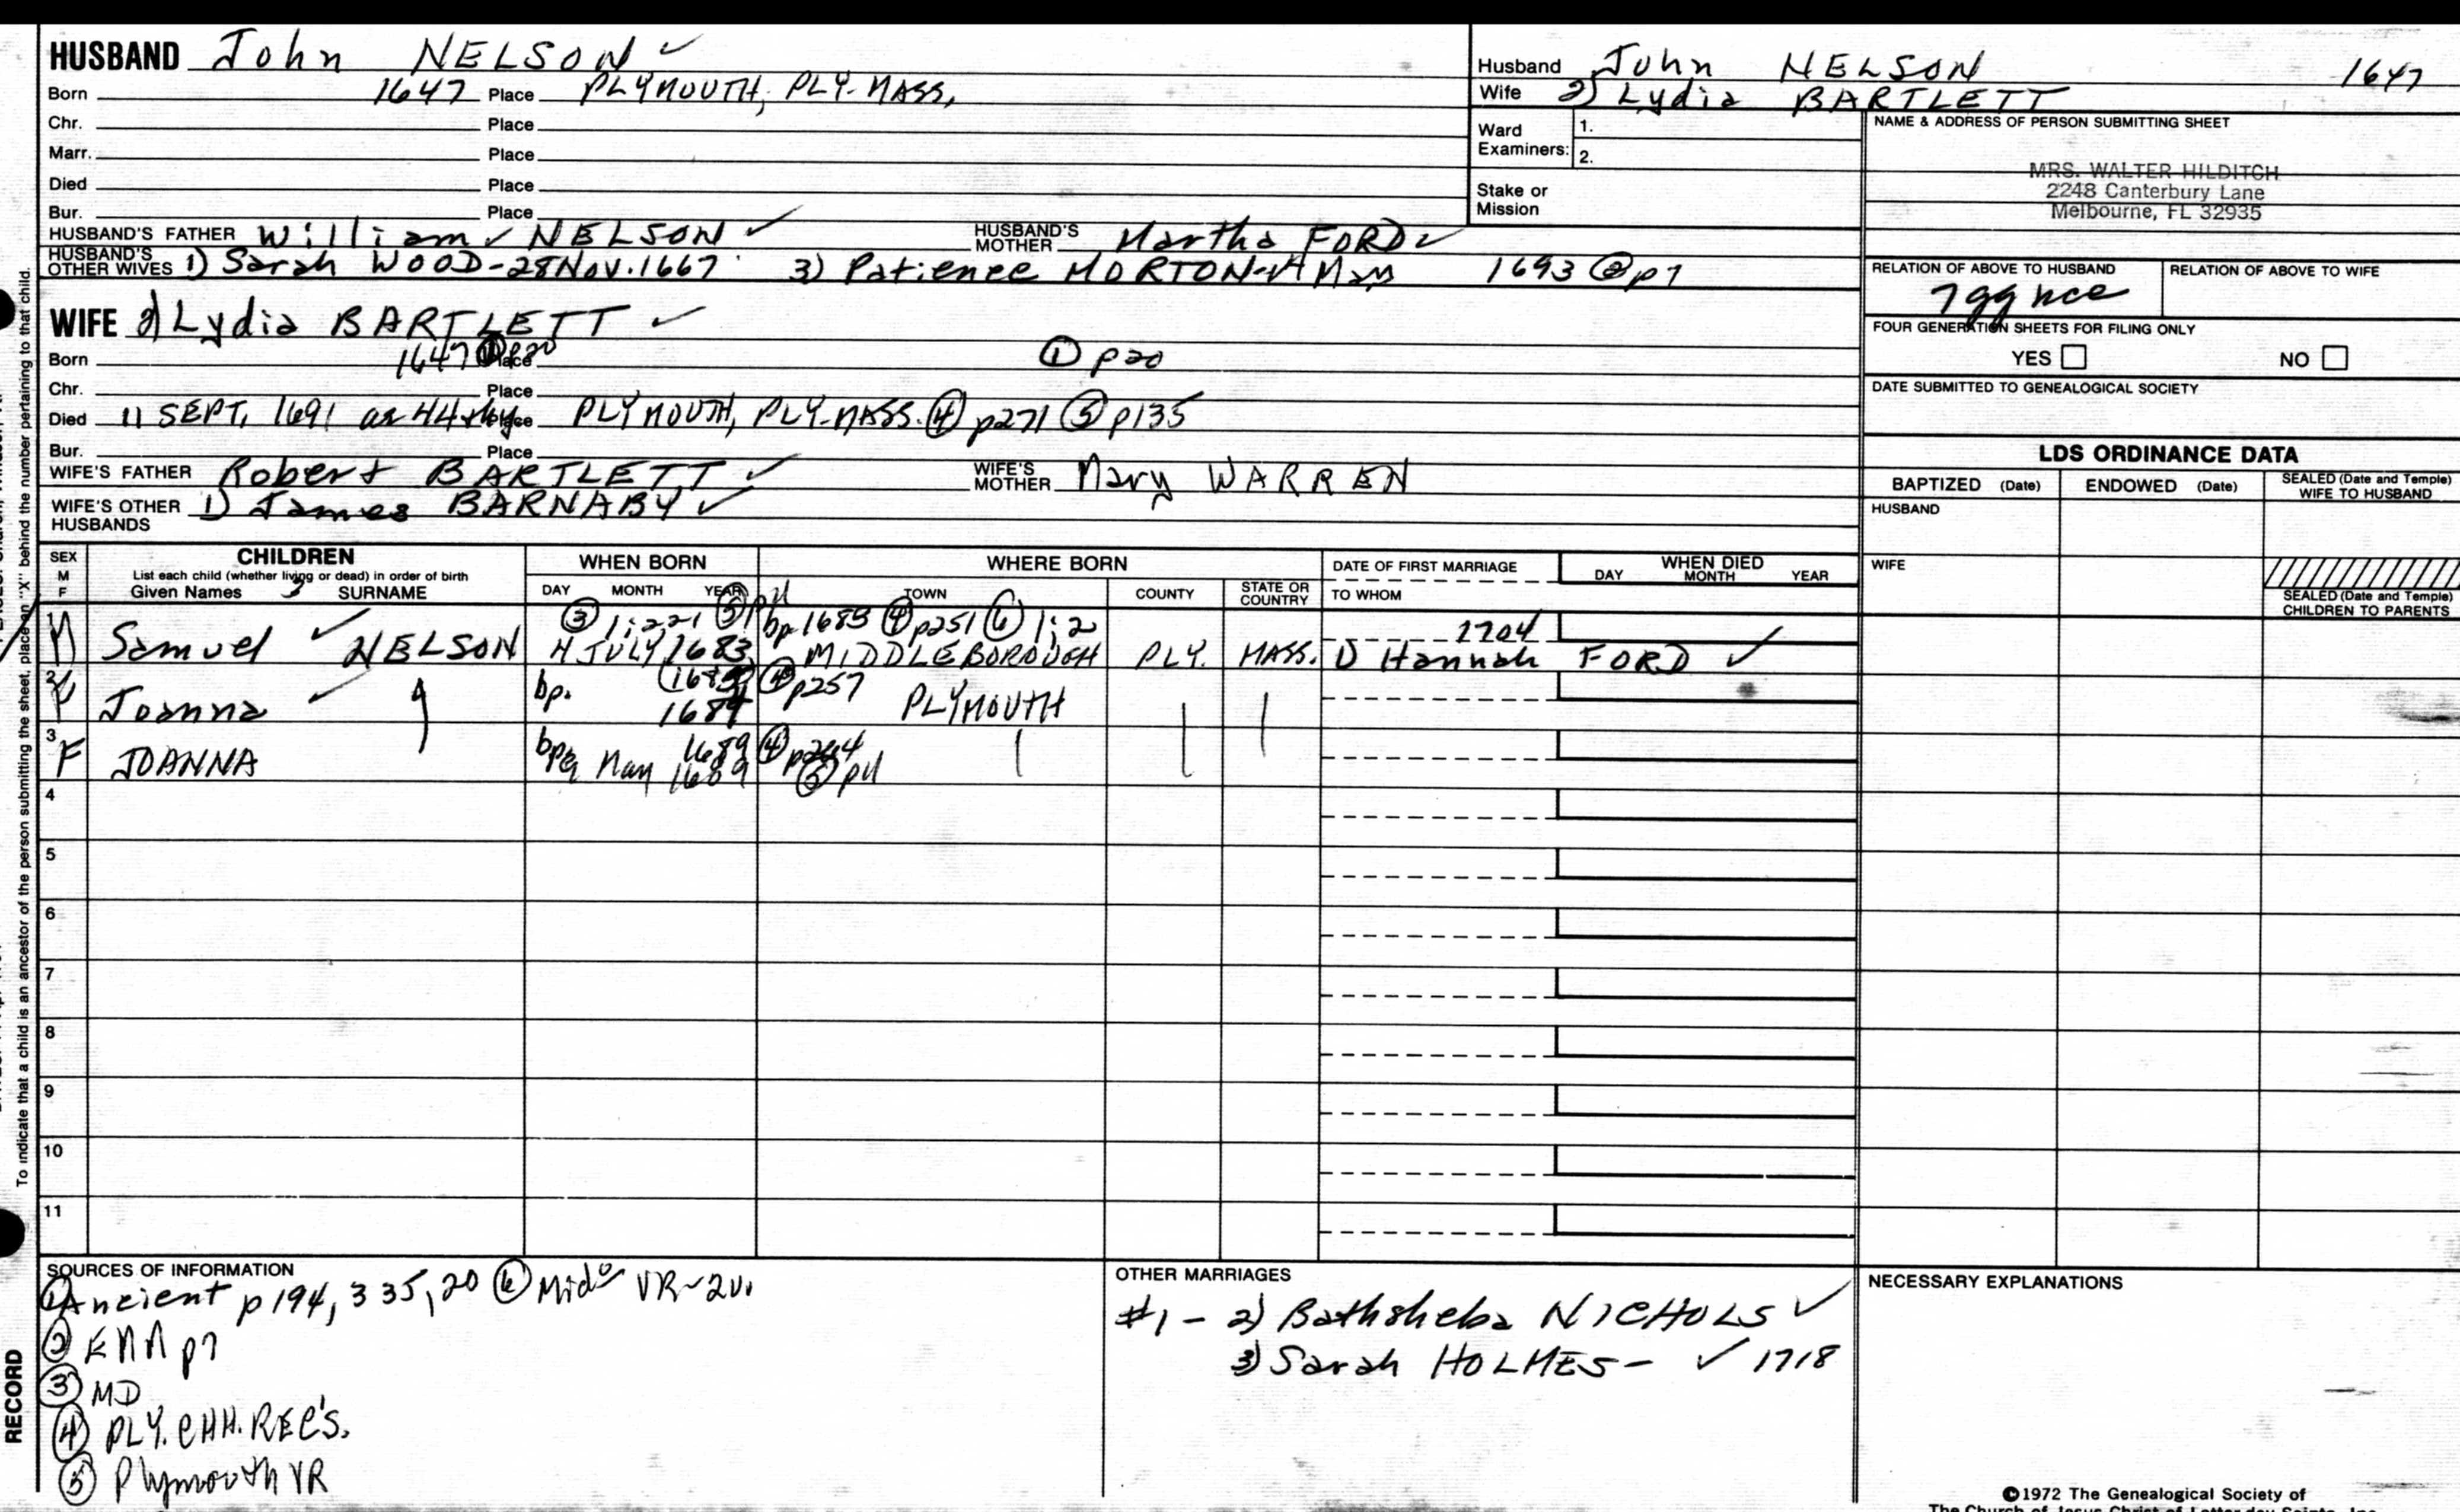 HUSBAND John NELSON ✓
Born 1647 Place PLYMOUTH, PLY-MASS,
Chr. Place
Marr. Place
Died Place
Bur. Place
HUSBAND'S FATHER William ✓ NELSON ✓ HUSBAND'S MOTHER Martha FORD ✓
HUSBAND'S OTHER WIVES 1) Sarah WOOD-28 Nov. 1667 3) Patience MORTON-4 May 1693 ② p7
WIFE 2) Lydia BARTLETT ✓
Born 1647 ① p20 Place ① p20
Chr. Place
Died 11 SEPT, 1691 ae 44 Place PLYMOUTH, PLY-MASS. ④ p271 ⑤ p135
Bur. Place
WIFE'S FATHER Robert BARTLETT ✓ WIFE'S MOTHER Mary WARREN
WIFE'S OTHER HUSBANDS 1) James BARNABY ✓
Husband John NELSON 1647
Wife 2) Lydia BARTLETT
Ward Examiners: 1.
2.
Stake or Mission
NAME & ADDRESS OF PERSON SUBMITTING SHEET
MRS. WALTER HILDITCH
2248 Canterbury Lane
Melbourne, FL 32935
RELATION OF ABOVE TO HUSBAND RELATION OF ABOVE TO WIFE
7gg nce
FOUR GENERATION SHEETS FOR FILING ONLY
YES NO
DATE SUBMITTED TO GENEALOGICAL SOCIETY
LDS ORDINANCE DATA
BAPTIZED (Date) ENDOWED (Date) SEALED (Date and Temple) WIFE TO HUSBAND
HUSBAND
WIFE
SEALED (Date and Temple) CHILDREN TO PARENTS
SEX M F
CHILDREN
List each child (whether living or dead) in order of birth
Given Names 3 SURNAME
WHEN BORN
DAY MONTH YEAR
WHERE BORN
TOWN COUNTY STATE OR COUNTRY
DATE OF FIRST MARRIAGE
TO WHOM
WHEN DIED
DAY MONTH YEAR
③ 1:221 ⑤ p11 bp 1683 ④ p251 ⑥ 1:2 1704
M Samuel ✓ NELSON 4 JULY 1683 MIDDLEBOROUGH PLY. MASS. 1) Hannah FORD ✓
2 F Joanna ✓ bp. 1684 ④ p257 PLYMOUTH
3 F JOANNA bp 1689 ④ p264
May 1689 ⑤ p11
4
5
6
7
8
9
10
11
SOURCES OF INFORMATION
① Ancient p194, 335, 20 ⑥ Mido VR-2v.
② p7
③ MD
④ PLY. CHH. REC'S.
⑤ Plymouth VR
OTHER MARRIAGES
#1 - 2) Bathsheba NICHOLS ✓
3) Sarah HOLMES - ✓ 1718
NECESSARY EXPLANATIONS
©1972 The Genealogical Society of
The Church of Jesus Christ of Latter-day Saints, Inc.
To indicate that a child is an ancestor of the person submitting the sheet, place an "X" behind the number pertaining to that child.
RECORD